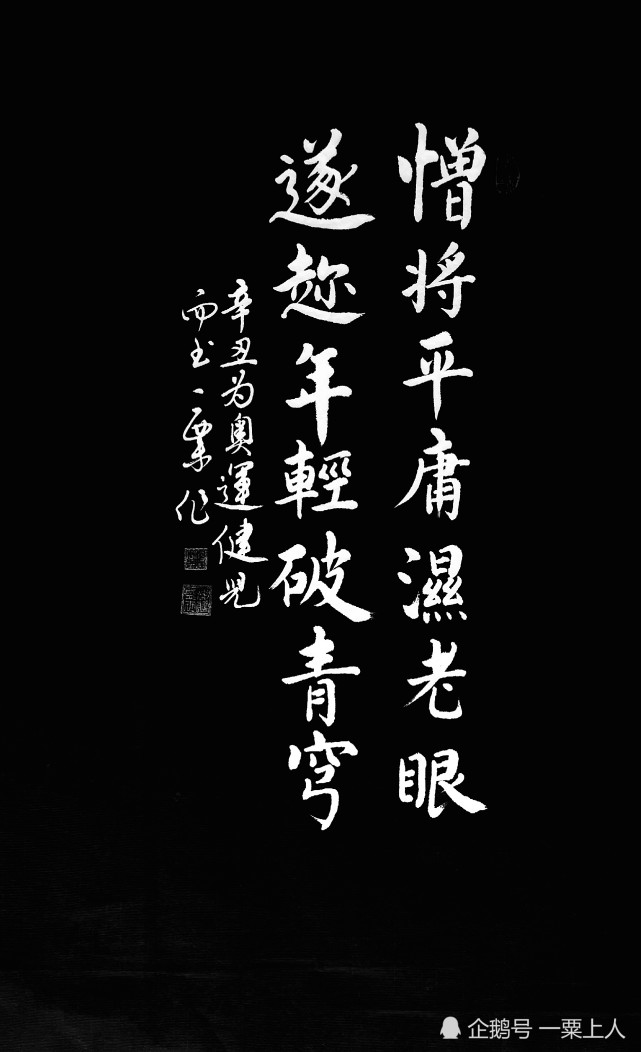 憎将平庸濕老眼
遂趁年輕破青穹
辛丑为奧運健児
而书一粟作
企鹅号 一粟上人